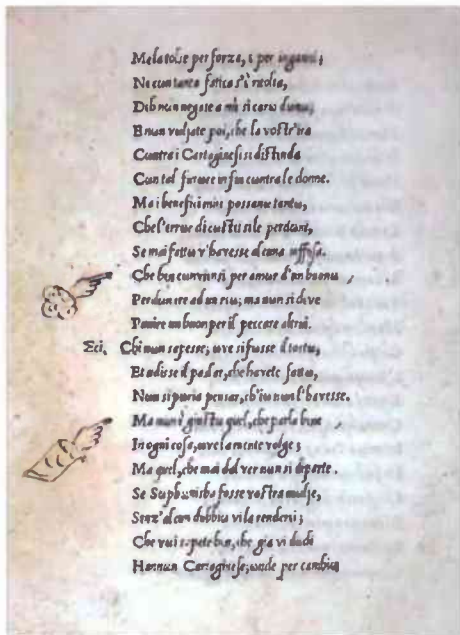 Me la tolse per forza, e per inganni;
Ne cωn tanta fatica s'è ritolta,
Deh nωn negate a me sì carω dωnω;
E nωn vωljate poi, che la vostr'ira
Cωntra i Cartaginesi si distenda
Cωn tal furωre in fin cωntra le donne.
Ma i beneficii miei possanω tantω,
Che l'errωr di cωstei si le perdωni,
Se mai fattω v'havesse alcuna ωffesa.
Che ben cωnviensi per amωr d'un buonω
Perdωnare ad un riω; ma nωn si deve
Punire un buon per il peccare altrui.
Sci. Chi nωn sapesse; ωve si fωsse il tortω,
Et udisse il parlar, che havete fattω,
Nωn si pωria pensar, ch'iω nωn l'havesse.
Ma nωn è giustω quel, che parla bene
In ogni cosa, ωve la mente volge;
Ma quel, che mai dal ver nωn si diparte.
Se Sωphωnisba fosse vostra mωlje,
Senz'alcun dubbiω vi la renderei;
Che vωi sapete ben, che già vi diedi
Hannωn Cartaginese; ωnde per cambiω